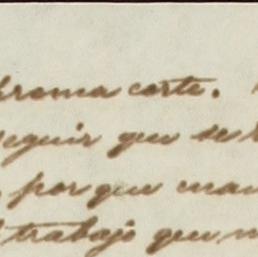 brema corte.
seguir que se
por que cuan
trabajo que n